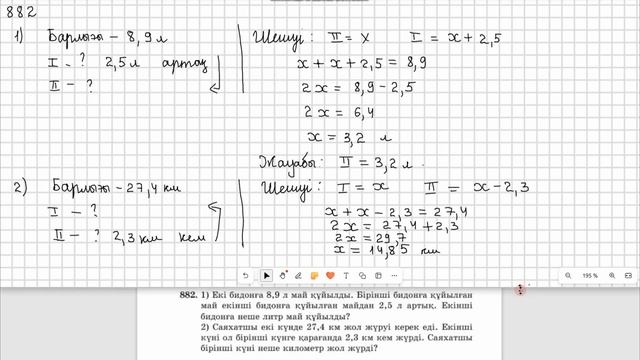 882
1) Барлығы – 8,9 л
I – ? 2,5 л артық
II – ?
Шешуі: II = x I = x + 2,5
x + x + 2,5 = 8,9
2x = 8,9 – 2,5
2x = 6,4
x = 3,2 л
Жауабы: II = 3,2 л.
2) Барлығы – 27,4 км
I – ?
II – ? 2,3 км кем
Шешуі: I = x II = x – 2,3
x + x – 2,3 = 27,4
2x = 27,4 + 2,3
2x = 29,7
x = 14,85 км
195 %
882. 1) Екі бидонға 8,9 л май құйылды. Бірінші бидонға құйылған
май екінші бидонға құйылған майдан 2,5 л артық. Екінші
бидонға неше литр май құйылды?
2) Саяхатшы екі күнде 27,4 км жол жүруі керек еді. Екінші
күні ол бірінші күнге қарағанда 2,3 км кем жүрді. Саяхатшы
бірінші күні неше километр жол жүрді?